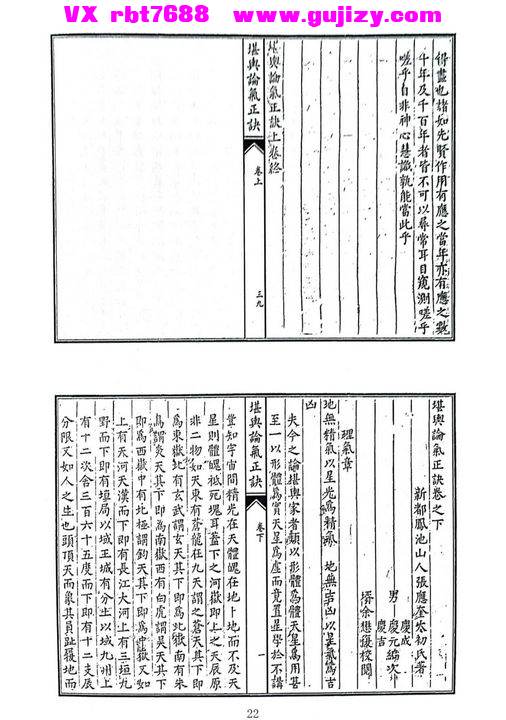 VX rbt7688 www.gujizy.com
得盡也諸如先賢作用有應之當年亦有應之數
十年及千百年者皆不可以尋常耳目窺測嗟乎
嗟乎自非神心慧識孰能當此乎
堪輿論氣正訣上卷終
堪輿論氣正訣
卷上
三九
堪輿論氣正訣卷之下
新都鳳池山人張應奎太初氏著
慶成
男 慶元編次
慶吉
壻余懋復校閱
理氣章
地無精氣以星光為精氣 地無吉凶以星氣為吉
凶
夫今之論堪輿家者類以形體為體天星為用甚
至一以形體為實天星為虛而竟置星學於不講
堪輿論氣正訣
卷下
一
豈知宇宙間精光在天體魄在地卜地而不及天
星則體魄祗死塊耳蓋下之河嶽即上之天辰原
非二物如天東有蒼龍在九天謂之蒼天其下即
為東嶽北有玄武謂玄天其下即為北嶽南有朱
鳥謂炎天其下即為南嶽西有白虎謂昊天其下
即為西嶽中有北極謂鈞天其下即為嶽又如
上有天河天漢而下即有長江大河上有三垣九
野而下即有垣局以域王城有分土以域九州上
有十二次舍三百六十五度而下即有十二支辰
分限又如人之生也頭頂天而象其員趾履地而
22